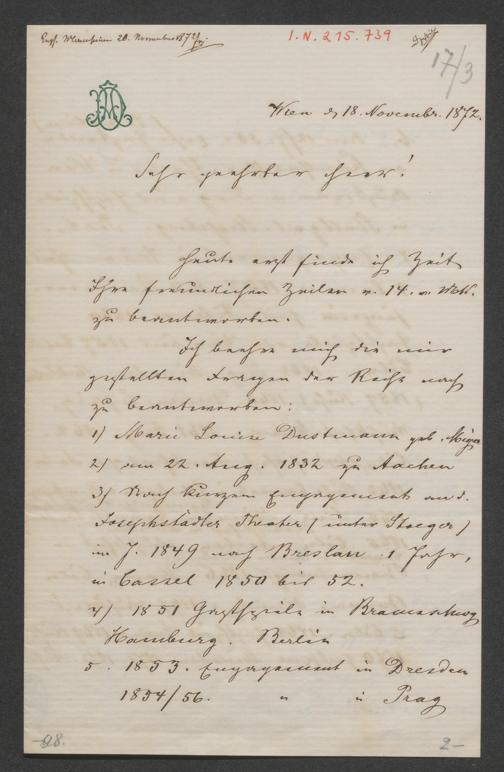 Empf. Mannheim 20. November 1872
I.N. 215.739
17/3
Wien d. 18. Novembr. 1872.
Sehr geehrter Herr!
Heute erst finde ich Zeit
Ihre freundlichen Zeilen v. 14. d. Mts.
zu beantworten.
Ich beehre mich die mir
gestellten Fragen der Reihe nach
zu beantworten:
1) Marie Louise Dustmann geb. Meyer
2) am 22. Aug. 1832 zu Aachen
3) Nach kurzem Engagement am d.
Josephstädter Theater (unter Stoeger)
im J. 1849 nach Breslau 1 Jahr,
in Cassel 1850 bis 52.
4) 1851 Gastspiele in Braunschweig
Hamburg. Berlin
5. 1853. Engagement in Dresden
1854/56. " in Prag
98.
2-